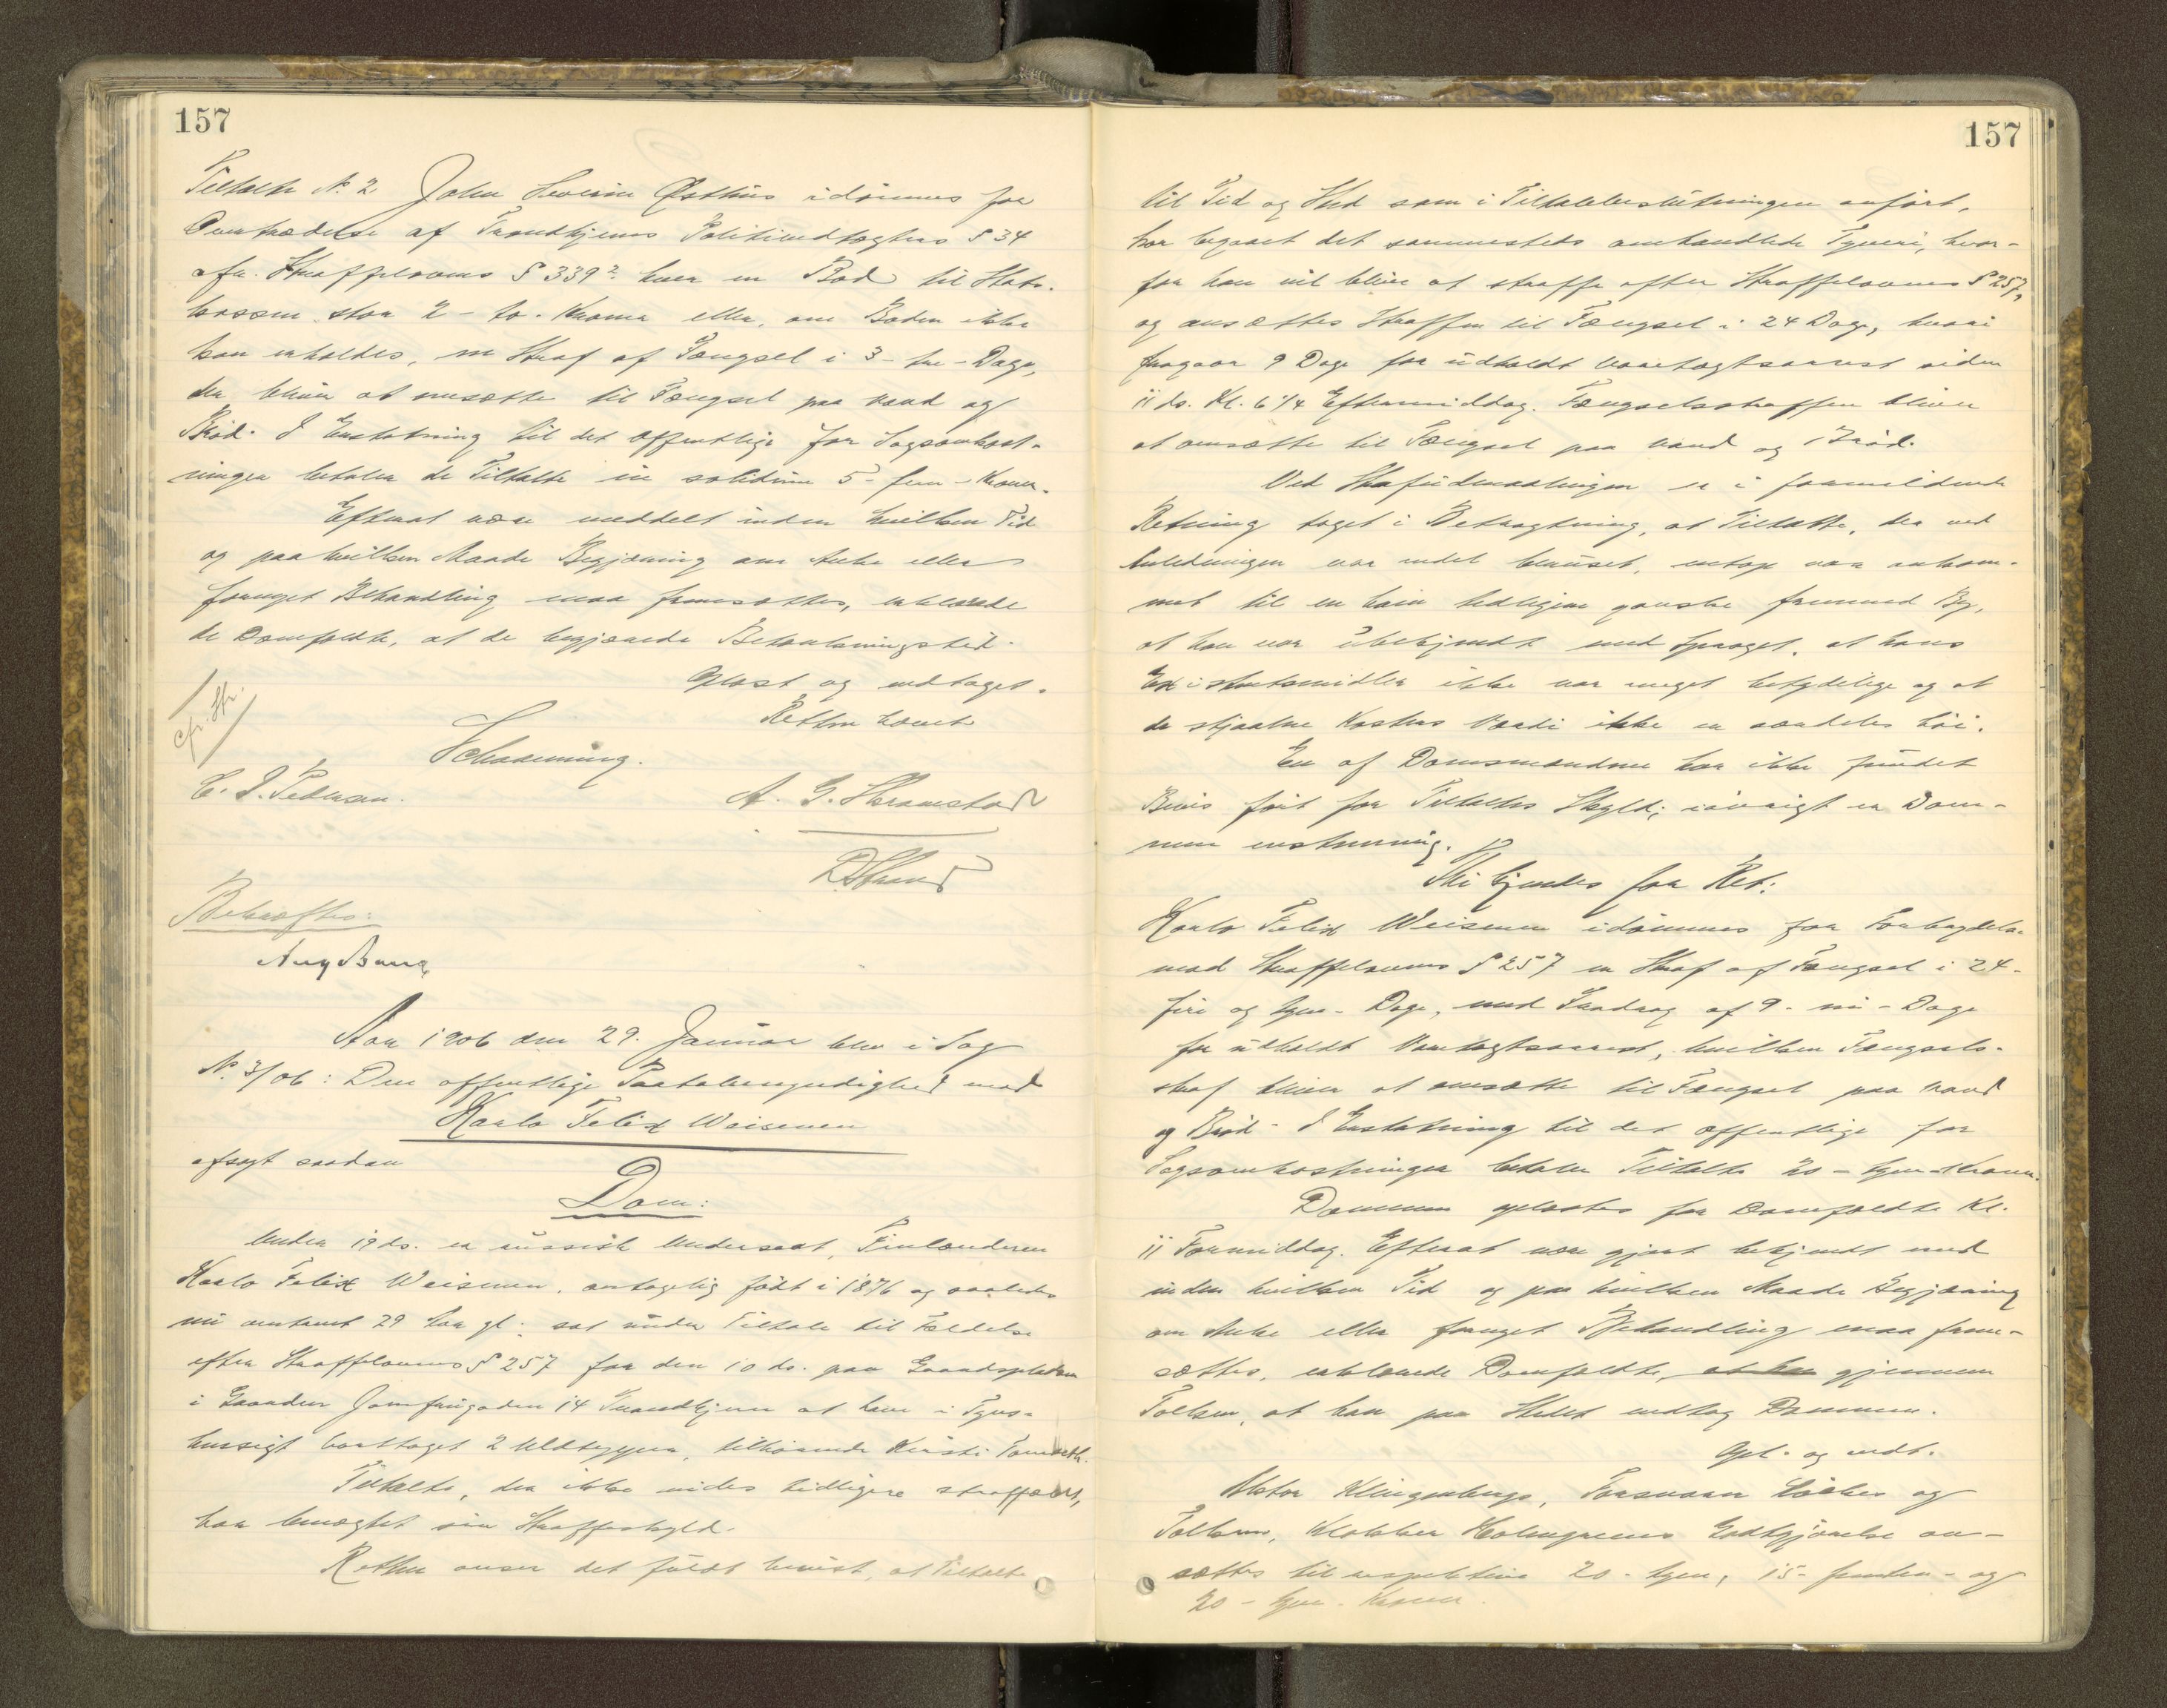 157
Tiltalte No. 2 John Severin Østhus idømmes for
Overtrædelse af Trondhjems Politivedtægters § 34
cfr. Straffelovens § 339² hver en Bod til Stats-
kassen stor 2 - to - Kroner eller, om Boden ikke
kan erholdes, en Straf af Fængsel i 3 - tre - Dage,
der bliver at omsætte til Fængsel paa Vand og
Brød. I Erstatning til det offentlige for Sagsomkost-
ninger betaler de Tiltalte in solidum 5 - fem - Kroner.
Efterat være meddelt inden hvilken Tid
og paa hvilken Maade Begjæring om Anke eller
fornyet Behandling maa fremsættes, erklærede
de Domfældte, at de begjærede Betænkningstid.
Oplæst og vedtaget.
Retten hævet
cfr. Str.
Schawning.
C. J. Pedersen.
A. G. Skramstad
D. Strand
Bekræftes:
Aug Bang
Aar 1906 den 29. Januar blev i Sag
No. 3/06: Den offentlige Paatalemyndighed mod
Karlo Felix Weisenen
afsagt saadan
Dom:
Under 19 ds. er russisk Undersaat, Finlænderen
Karlo Felix Weisenen, antagelig født i 1876 og saaledes
nu omtrent 29 Aar gl. sat under Tiltale til Fældelse
efter Straffelovens § 257 for den 10 ds. paa Gaardspladsen
i Gaarden Jomfrugaden 14 Trondhjem at have i Tyvs-
hensigt borttaget 2 Uldtepper, tilhørende Kirsti
Tiltalte, der ikke vides tidligere straffet,
har benægtet sin Straffeskyld.
Retten anser det fuldt bevist, at Tiltalte
157
til Tid og Sted som i Tiltalebeslutningen anført,
har begaaet det sammesteds omhandlede Tyveri, hvor-
for han vil blive at straffe efter Straffelovens § 257,
og ansættes Straffen til Fængsel i 24 Dage, hvori
fragaar 9 Dage for udholdt Varetægtsarrest siden
11 ds. Kl. 6 1/4 Eftermiddag. Fængselsstraffen bliver
at omsætte til Fængsel paa Vand og Brød.
Ved Strafudmaalingen er i formildende
Retning taget i Betragtning, at Tiltalte, der ved
Anledningen var endel beruset, netop var ankom-
met til en ham tidligere ganske fremmed By,
at han var ubekjendt med Sproget, at hans
Existentsmidler ikke var meget betydelige og at
de stjaalne Kosters Værdi ikke er særdeles høi.
En af Domsmændene har ikke fundet
Bevis ført for Tiltaltes Skyld; iøvrigt er Dom-
men enstemmig.
Thi kjendes for Ret:
Karlo Felix Weisenen idømmes for Forbrydelse
mod Straffelovens § 257 en Straf af Fængsel i 24 -
fire og tyve - Dage, med Fradrag af 9 - ni - Dage
for udholdt Varetægtsarrest, hvilken Fængsels-
straf bliver at omsætte til Fængsel paa Vand
og Brød. I Erstatning til det offentlige for
Sagsomkostninger betaler Tiltalte 20 - tyve - Kroner.
Dommen oplæstes for Domfældte Kl.
11 Formiddag. Efterat være gjort bekjendt med
inden hvilken Tid og paa hvilken Maade Begjæring
om Anke eller fornyet Behandling maa frem-
sættes, erklærede Domfældte, at han gjennem
Tolken, at han paa Stedet vedtog Dommen.
Opl. og vedt.
Aktor Klingenbergs, Forsvarer og
Tolkens, Klokker Holmgrens Godtgjørelse an-
sættes til respektive 20 - tyve, 15 - femten - og
20 - tyve - Kroner.